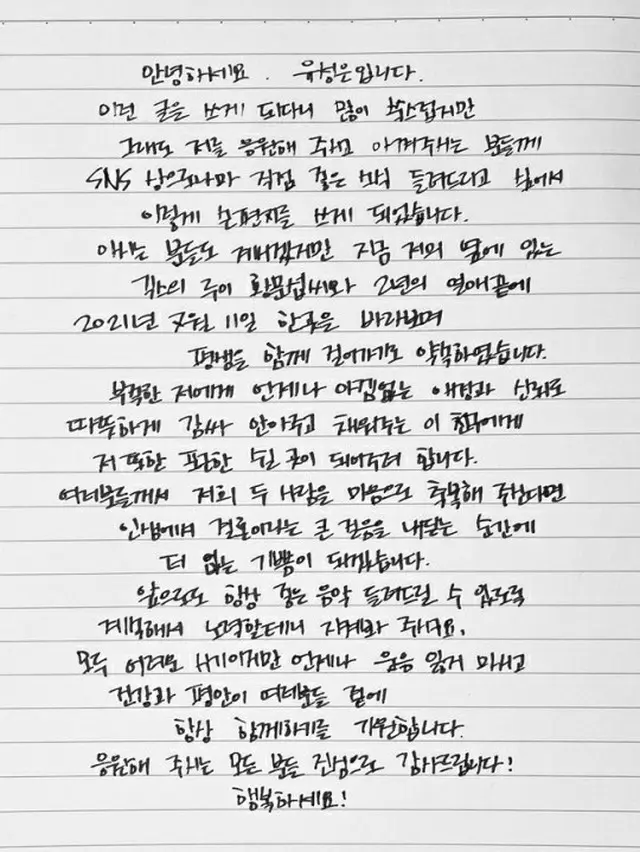 안녕하세요. 유성은입니다.
이런 글을 쓰게 되다니 많이 쑥스럽지만
그래도 저를 응원해 주시고 아껴주시는 분들께
SNS 상으로나마 직접 좋은 소식 들려드리고 싶어서
이렇게 손편지를 쓰게 되었습니다.
아시는 분들도 계시겠지만 지금 저의 옆에 있는
긱스의 루이 황문섭씨와 2년의 연애끝에
2021년 7월 11일 한곳을 바라보며
평생을 함께 걸어가기로 약속하였습니다.
부족한 저에게 언제나 아낌없는 애정과 신뢰로
따뜻하게 감싸 안아주고 채워주는 이 친구에게
저 또한 편한 쉴 곳이 되어주려 합니다.
여러분들께서 저희 두 사람을 마음으로 축복해 주신다면
인생에서 결혼이라는 큰 걸음을 내딛는 순간에
더 없는 기쁨이 되겠습니다.
앞으로도 항상 좋은 음악 들려드릴 수 있도록
계속해서 노력할테니 지켜봐 주세요.
모두 어려운 시기이지만 언제나 웃음 잃지 마시고
건강과 평안이 여러분들 곁에
항상 함께하기를 기원합니다.
응원해 주시는 모든 분들 진심으로 감사드립니다!
행복하세요!